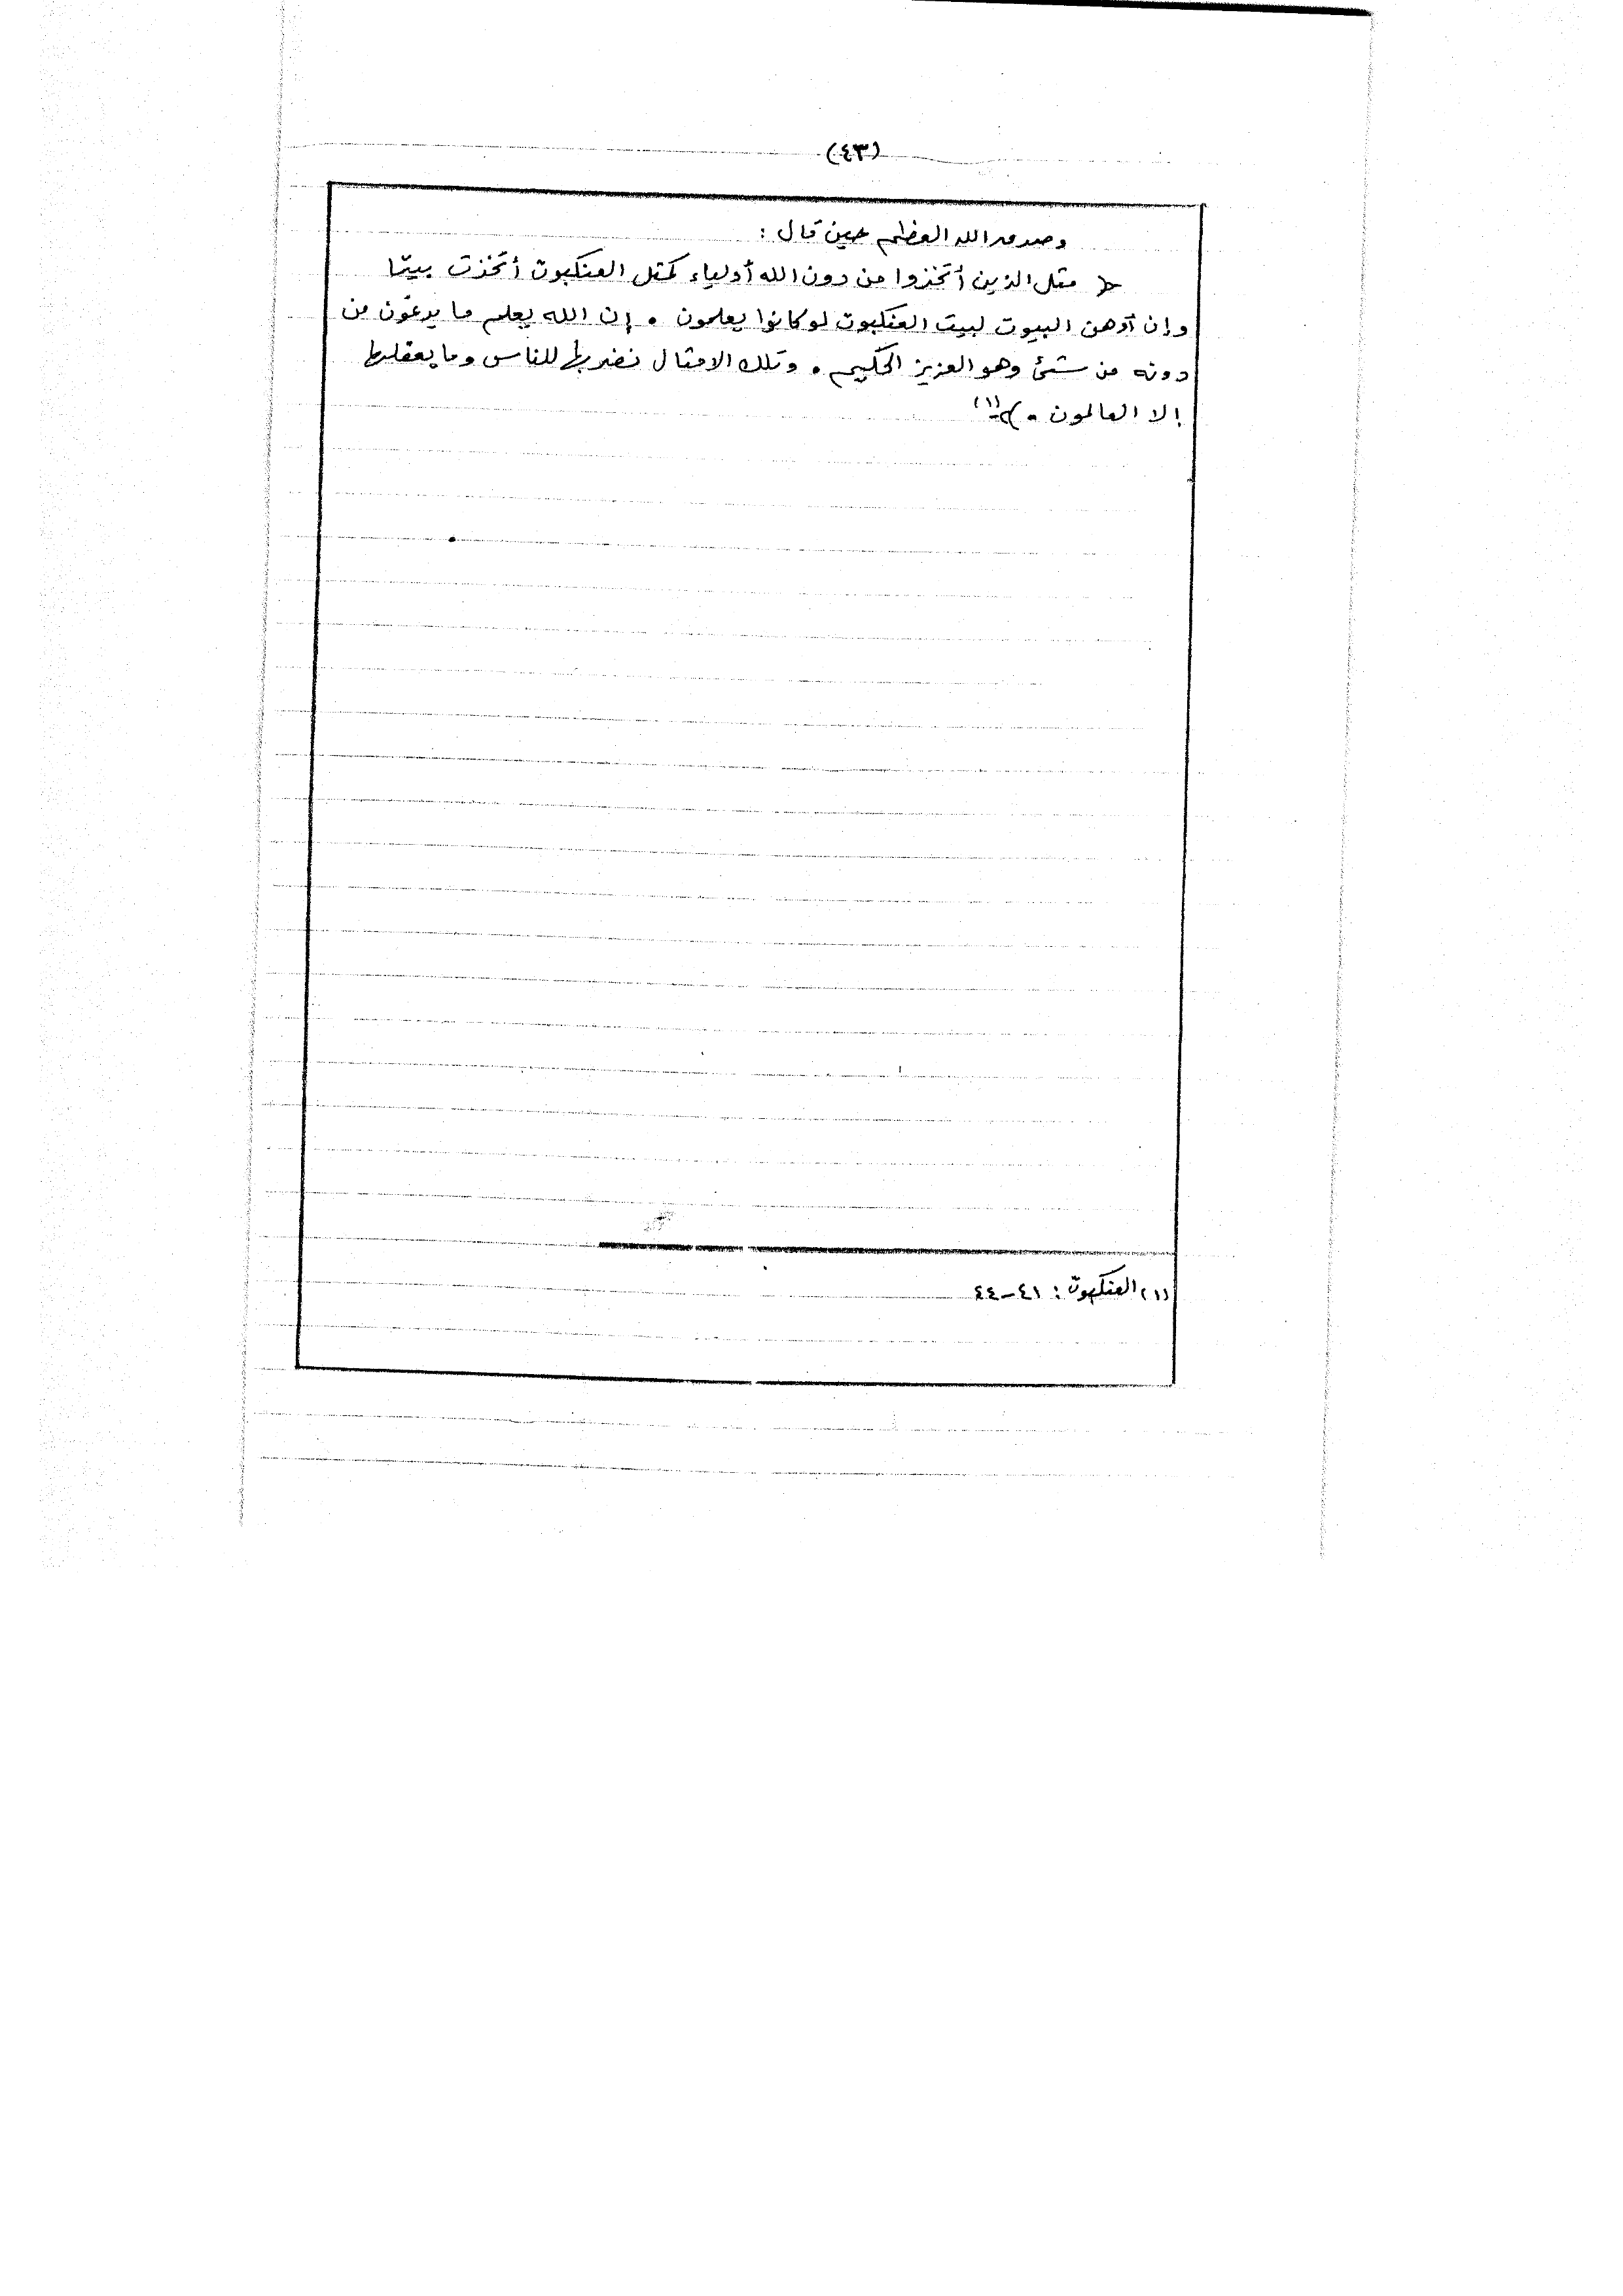 (٤٣)
وصدق الله العظيم حين قال :
﴿ مثل الذين أتخذوا من دون الله أولياء كمثل العنكبوت أتخذت بيتا
وإن أوهن البيوت لبيت العنكبوت لو كانوا يعلمون ٠ إن الله يعلم ما يدعون من
دونه من شئ وهو العزيز الحكيم ٠ وتلك الامثال نضربها للناس وما يعقلها
إلا العالمون ٠ ﴾ (١)
(١) العنكبوت : ٤١-٤٤